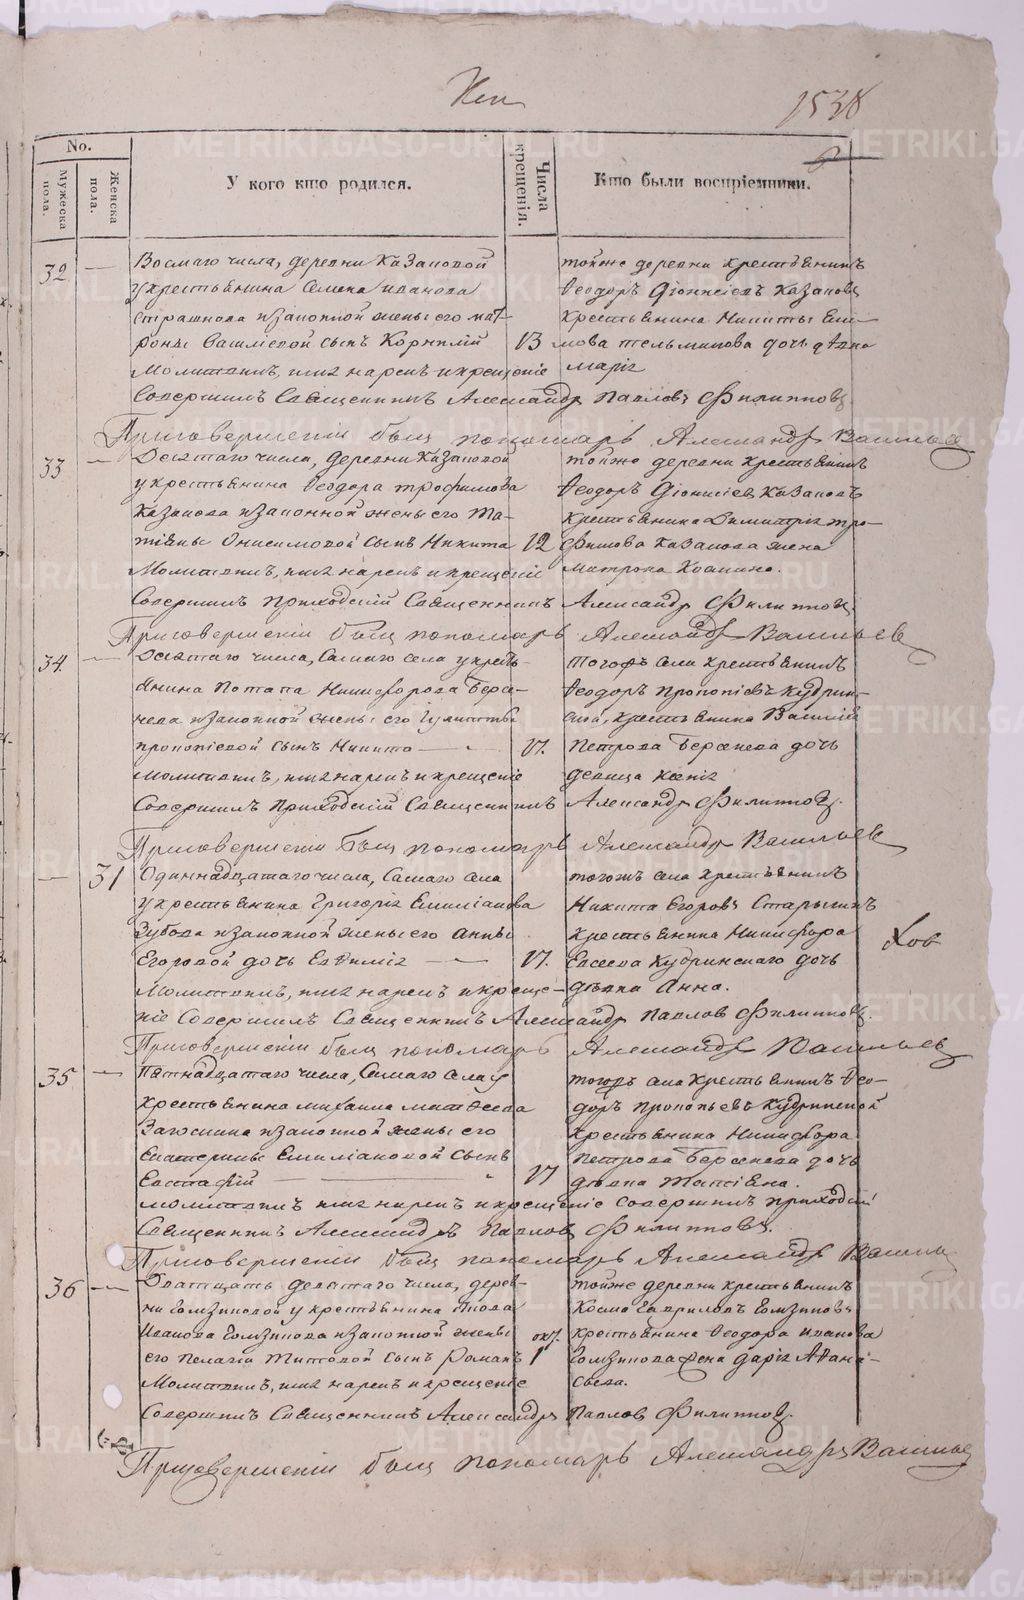 1538
No.
Мужеска пола.
Женска пола.
У кого кто родился.
Числа крещенія.
Кто были воспріемники.
32 — Восмаго числа, деревни Казаковой
у крестьянина Семена Иванова
и законной жены его Мат-
роны Васильевой сынъ Корнилій 13
Молитвилъ, имя нарекъ и крещеніе
Совершилъ Священникъ Александръ Павловъ Филипповъ.
тойже деревни крестьянинъ
Ѳеодоръ Діонисіевъ Казаковъ
крестьянина Никиты Еки-
мова дочь дѣвка
Марія
При совершеніи былъ пономарь Александръ Васильевъ
33 — Десятаго числа, деревни Казаковой
у крестьянина Ѳеодора Трофимова
Казакова и законной жены его Та-
тіяны Онисимовой сынъ Никита 12
Молитвилъ, имя нарекъ и крещеніе
Совершилъ приходскій Священникъ Александръ Филипповъ.
тойже деревни крестьянинъ
Ѳеодоръ Діонисіевъ Казаковъ
крестьянина Димитрія Тро-
фимова Казакова жена
Матрона
При совершеніи былъ пономарь Александръ Васильевъ
34 — Десятаго числа, Самаго села у кресть-
янина Потапа Никифорова Берсе-
нева и законной жены его Гулитты
Прокопіевой сынъ Никита — 17.
Молитвилъ, имя нарекъ и крещеніе
Совершилъ приходскій Священникъ Александръ Филипповъ.
тогожъ села крестьянинъ
Ѳеодоръ Прокопіевъ Кудрин-
скій, крестьянина Василія
Петрова Берсенева дочь
девица Ксенія
При совершеніи былъ пономарь Александръ Васильевъ
— 31 Одиннадцатаго числа, Самаго села
у крестьянина Григорія Емиліанова
Зубова и законной жены его Анны
Егоровой дочь Евѳимія — 17.
Молитвилъ, имя нарекъ и креще-
ніе Совершилъ Священникъ Александръ Павловъ Филипповъ.
тогожъ села крестьянинъ
Никита Егоровъ
крестьянина Никифора
Евсеева Кудринскаго дочь
дѣвка Анна.
При совершеніи былъ пономарь Александръ Васильевъ
35 — Пятнадцатаго числа, Самаго села у
крестьянина Михаила Матвеева
и законной жены его
Екатерины Емиліановой сынъ
Евстафій — 17
Молитвилъ имя нарекъ и крещеніе совершилъ приходскій
Священникъ Александръ Павловъ Филипповъ.
тогожъ села крестьянинъ Ѳео-
доръ Прокопьевъ Кудринской
крестьянина Никифора
Петрова Берсенева дочь
дѣвка Татіяна.
При совершеніи былъ пономарь Александръ Васильевъ
36 — Дватцать девятаго числа, дерев-
ни Гомзиковой у крестьянина
Иванова Гомзикова и законной жены
его Пелагіи Титовой сынъ Романъ окт. 1
Молитвилъ, имя нарекъ и крещеніе
Совершилъ Священникъ Александръ Павловъ Филипповъ.
тойже деревни крестьянинъ
Косма Гавриловъ Гомзиковъ
крестьянина Ѳеодора Иванова
Гомзикова жена Дарія Аѳана-
сьева.
При совершеніи былъ пономарь Александръ Васильевъ
METRIKI.GASO-URAL.RU